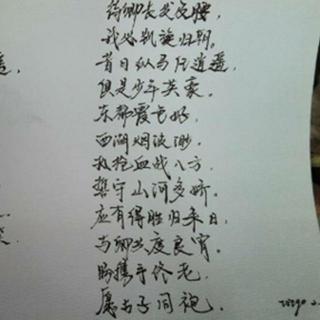 待卿长发及腰,
我必凯旋归朝。
昔日纵马任逍遥,
俱是少年英豪。
东都霞色好,
西湖烟波渺。
执枪血战八方,
誓守山河多娇。
应有得胜归来日,
与卿共度良宵。
盼携手终老,
愿与子同袍。